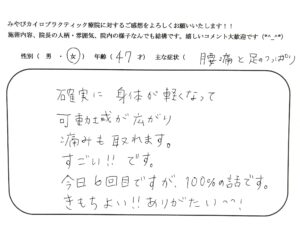 みやびカイロプラクティック療院に対するご感想をよろしくお願いいたします！！
施術内容、院長の人柄・雰囲気、院内の様子なんでも結構です。嬉しいコメント大歓迎です (*^_^*)
性別 (男・女) 年齢 (47 才) 主な症状 (腰痛と足のつっぱり
確実に 身体が軽くなって
可動域が広がり
痛みも取れます。
すごい!! です。
今日6回目ですが、100%の話です。
きもちよい!! ありがたい〜!